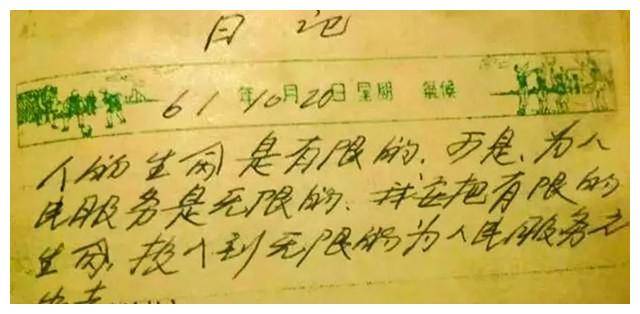 日记
61年10月20日 星期 氣候
人的生命是有限的,可是,为人
民服务是无限的,我要把有限的
生命,投入到无限的为人民服务之
中去